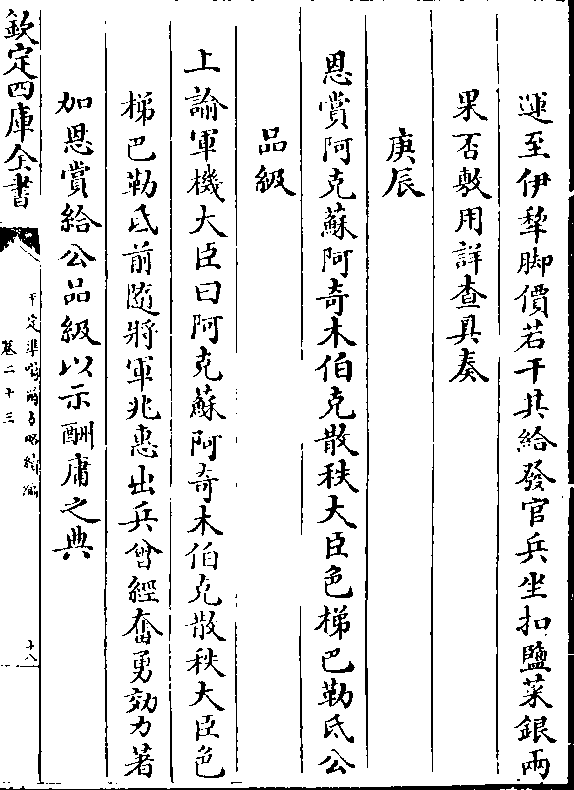 運至伊犂脚價若干其給發官兵坐扣鹽菜銀兩
果否敷用詳查具奏
庚辰
恩賞阿克蘇阿奇木伯克散秩大臣色梯巴勒氐公
品級
上諭軍機大臣曰阿克蘇阿奇木伯克散秩大臣色
梯巴勒氐前隨將軍兆惠出兵曾經奮勇効力著
加恩賞給公品級以示酬庸之典
欽定四庫全書
平定準噶爾方略續編
卷二十三
十八